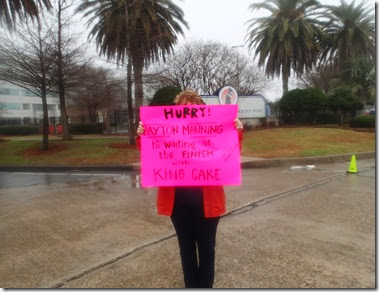 HURRY!
PAYTON MANNING
is waiting at
the FINISH
with
KING CAKE